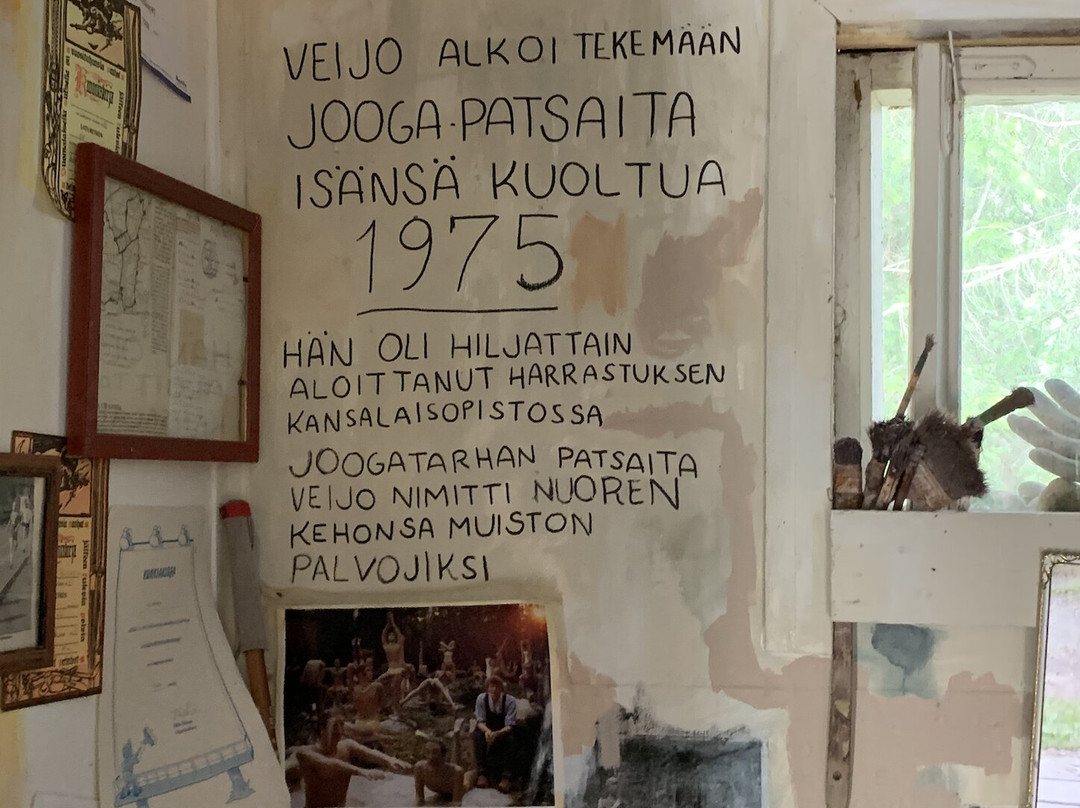 VEIJO ALKOI TEKEMÄÄN
JOOGA-PATSAITA
ISÄNSÄ KUOLTUA
1975
HÄN OLI HILJATTAIN
ALOITTANUT HARRASTUKSEN
KANSALAISOPISTOSSA
JOOGATARHAN PATSAITA
VEIJO NIMITTI NUOREN
KEHONSA MUISTON
PALVOJIKSI
KUNNIAKIRJA